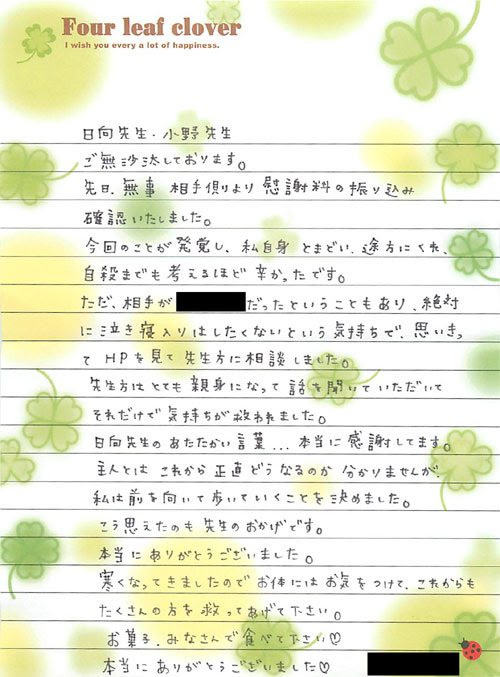 Four leaf clover
I wish you every a lot of happiness.
日向先生・小野先生
ご無沙汰しております。
先日、無事 相手側より 慰謝料の振り込み
確認いたしました。
今回のことが発覚し、私自身 とまどい、途方にくれ、
自殺までも考えるほど 辛かったです。
ただ、相手が だったということもあり、絶対
に泣き寝入りはしたくないという気持ちで、思いきっ
て HPを見て先生方に相談しました。
先生方は とても 親身になって 話を聞いていただいて
それだけで 気持ちが救われました。
日向先生のあたたかい言葉… 本当に感謝してます。
主人とは これから 正直どうなるのか 分かりませんが、
私は前を向いて歩いていくことを決めました。
こう思えたのも 先生のおかげです。
本当にありがとうございました。
寒くなってきましたので お体には お気をつけて、これからも
たくさんの方を救ってあげて下さい。
お菓子、みなさんで食べて下さい♡
本当にありがとうございました♡